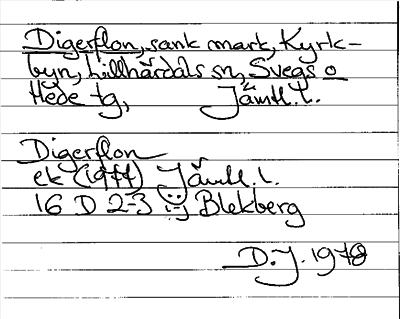 Digerflon, sank mark, Kyrk-
byn, Lillhärdals sn, Svegs o
Hede tg, Jämtl. l.
Digerflon
ek (1977) Jämtl. l.
16 D 2-3 i-j Blekberg
D.J. 1978